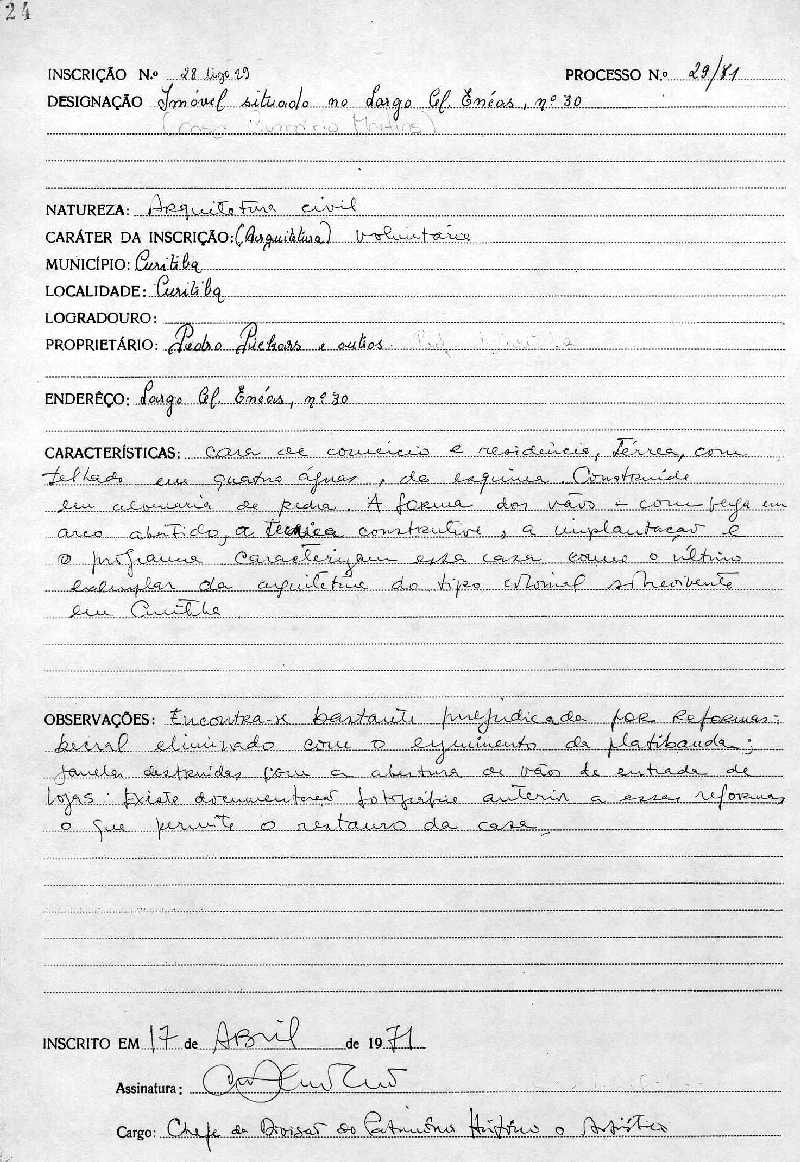 24
INSCRIÇÃO N.º 28
PROCESSO N.º 29/81
DESIGNAÇÃO Imóvel situado no Largo Cel. Enéas, nº 30
(Casa Romário Martins)
NATUREZA: Arquitetura civil
CARÁTER DA INSCRIÇÃO: (Arquitetura) Voluntária
MUNICÍPIO: Curitiba
LOCALIDADE: Curitiba
LOGRADOURO:
PROPRIETÁRIO: Pedro e outros
ENDERÊÇO: Largo Cel. Enéas, nº 30
CARACTERÍSTICAS: Casa de comércio e residência, térrea, com
telhado em quatro águas, de esquina. Construída
em alvenaria de pedra. A forma dos vãos - com verga em
arco abatido, a técnica construtiva, a implantação e
o programa caracterizam essa casa como o último
exemplar da arquitetura do tipo colonial sobrevivente
em Curitiba
OBSERVAÇÕES: Encontra-se bastante prejudicada por reformas:
beiral eliminado com o erguimento da platibanda;
janelas destruídas com a abertura de vãos de entrada de
lojas. Existe fotográfica anterior a essas reformas
o que permite o restauro da casa.
INSCRITO EM 17 de Abril de 1971
Assinatura:
Cargo: Chefe da Divisão do Patrimônio Histórico e Artístico